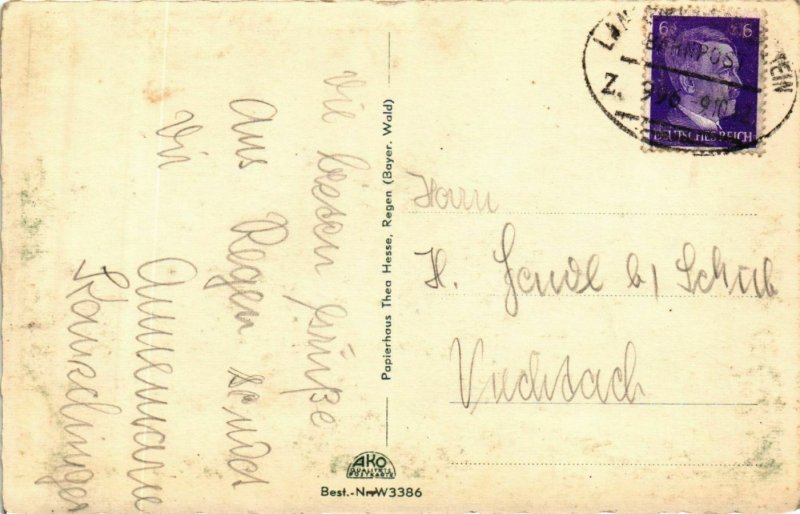 Die besten Grüße
Aus Regen sendet
Dir
Annemarie
Papierhaus Thea Hesse, Regen (Bayer. Wald)
AKO
QUALITÄTS
POSTKARTE
Best.-Nr. W3386
6 6
DEUTSCHES REICH
BAHNPOST
Z. 996
Herrn
H. b/ Schub
Viechtach